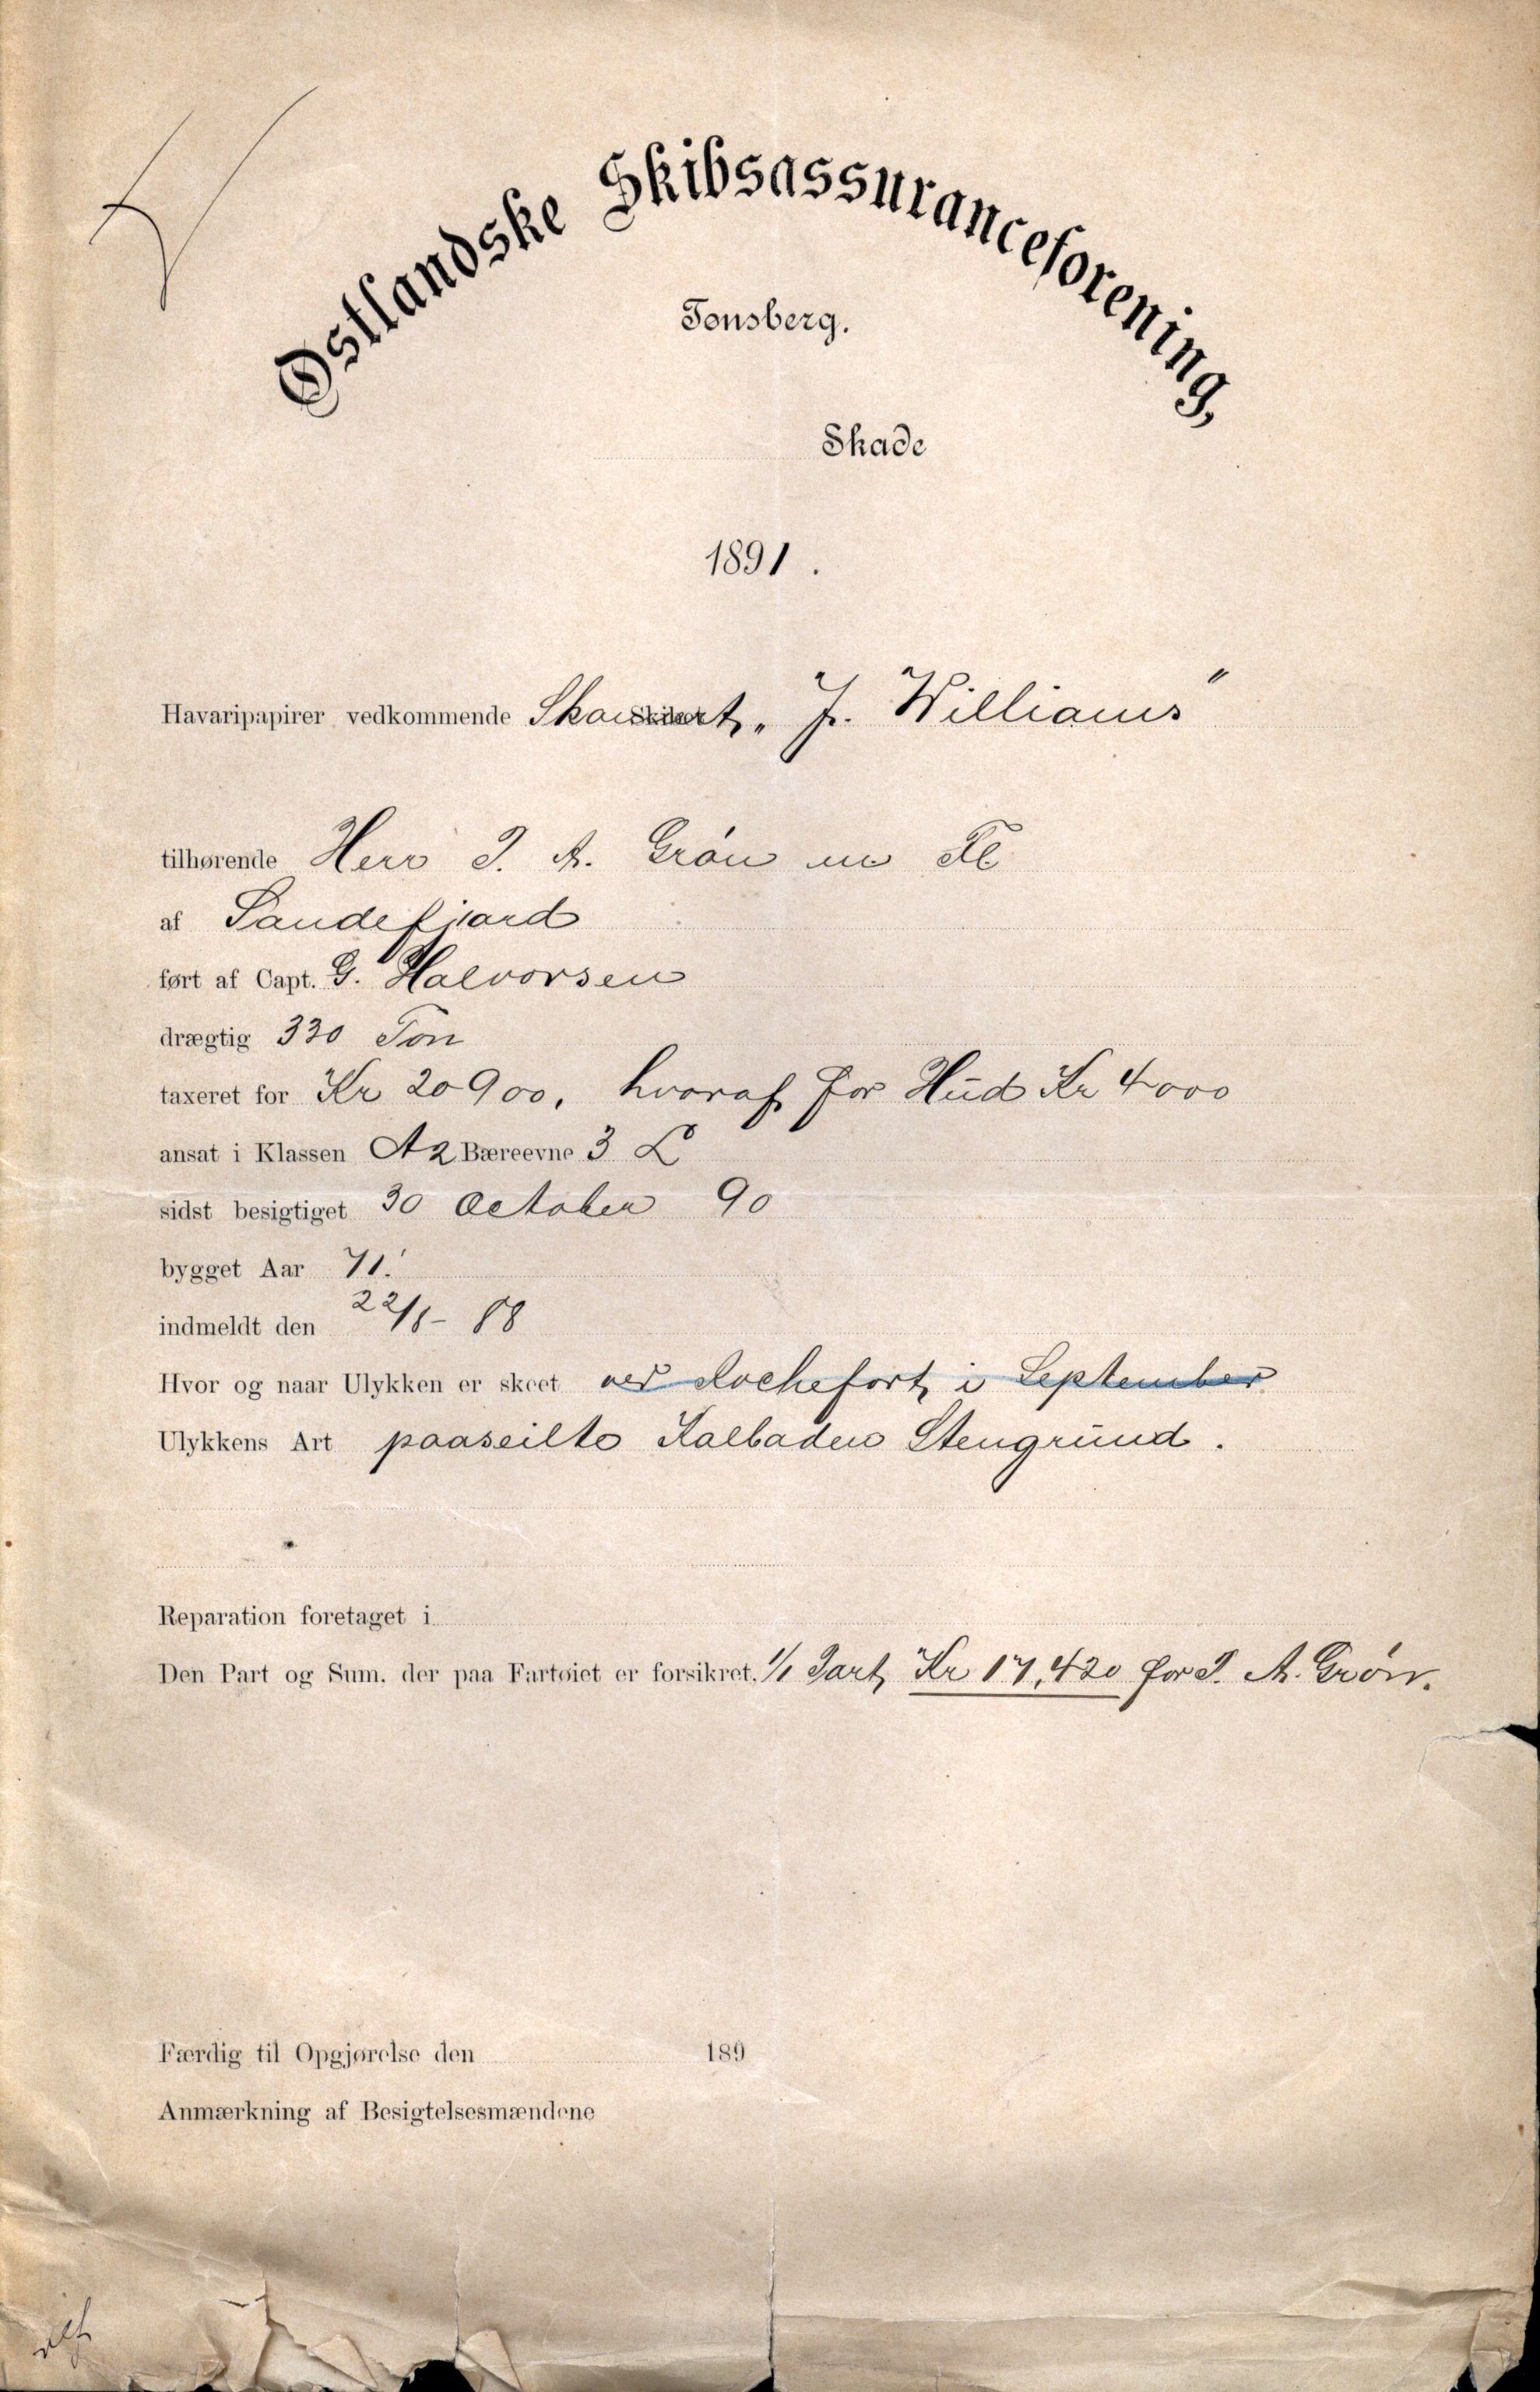 Østlandske Skibsassuranceforening,
Tønsberg.
Skade
1891.
Havaripapirer vedkommende Skonnert „J. Williams"
tilhørende Herr P. A. Grøn m Fl
af Sandefjord
ført af Capt. G. Halvorsen
drægtig 330 Ton
taxeret for Kr 20900, hvoraf for Hud Kr 4000
ansat i Klassen A2 Bæreevne 3 L
sidst besigtiget 30 October 90
bygget Aar 71.
indmeldt den 22/8- 88
Hvor og naar Ulykken er skeet ved Rochefort i September
Ulykkens Art paaseilte Kalbaden Stengrund.
Reparation foretaget i
Den Part og Sum, der paa Fartøiet er forsikret, 1/1 Part, Kr 17,420 for P. A. Grøn.
Færdig til Opgjørelse den 189
Anmærkning af Besigtelsesmændene